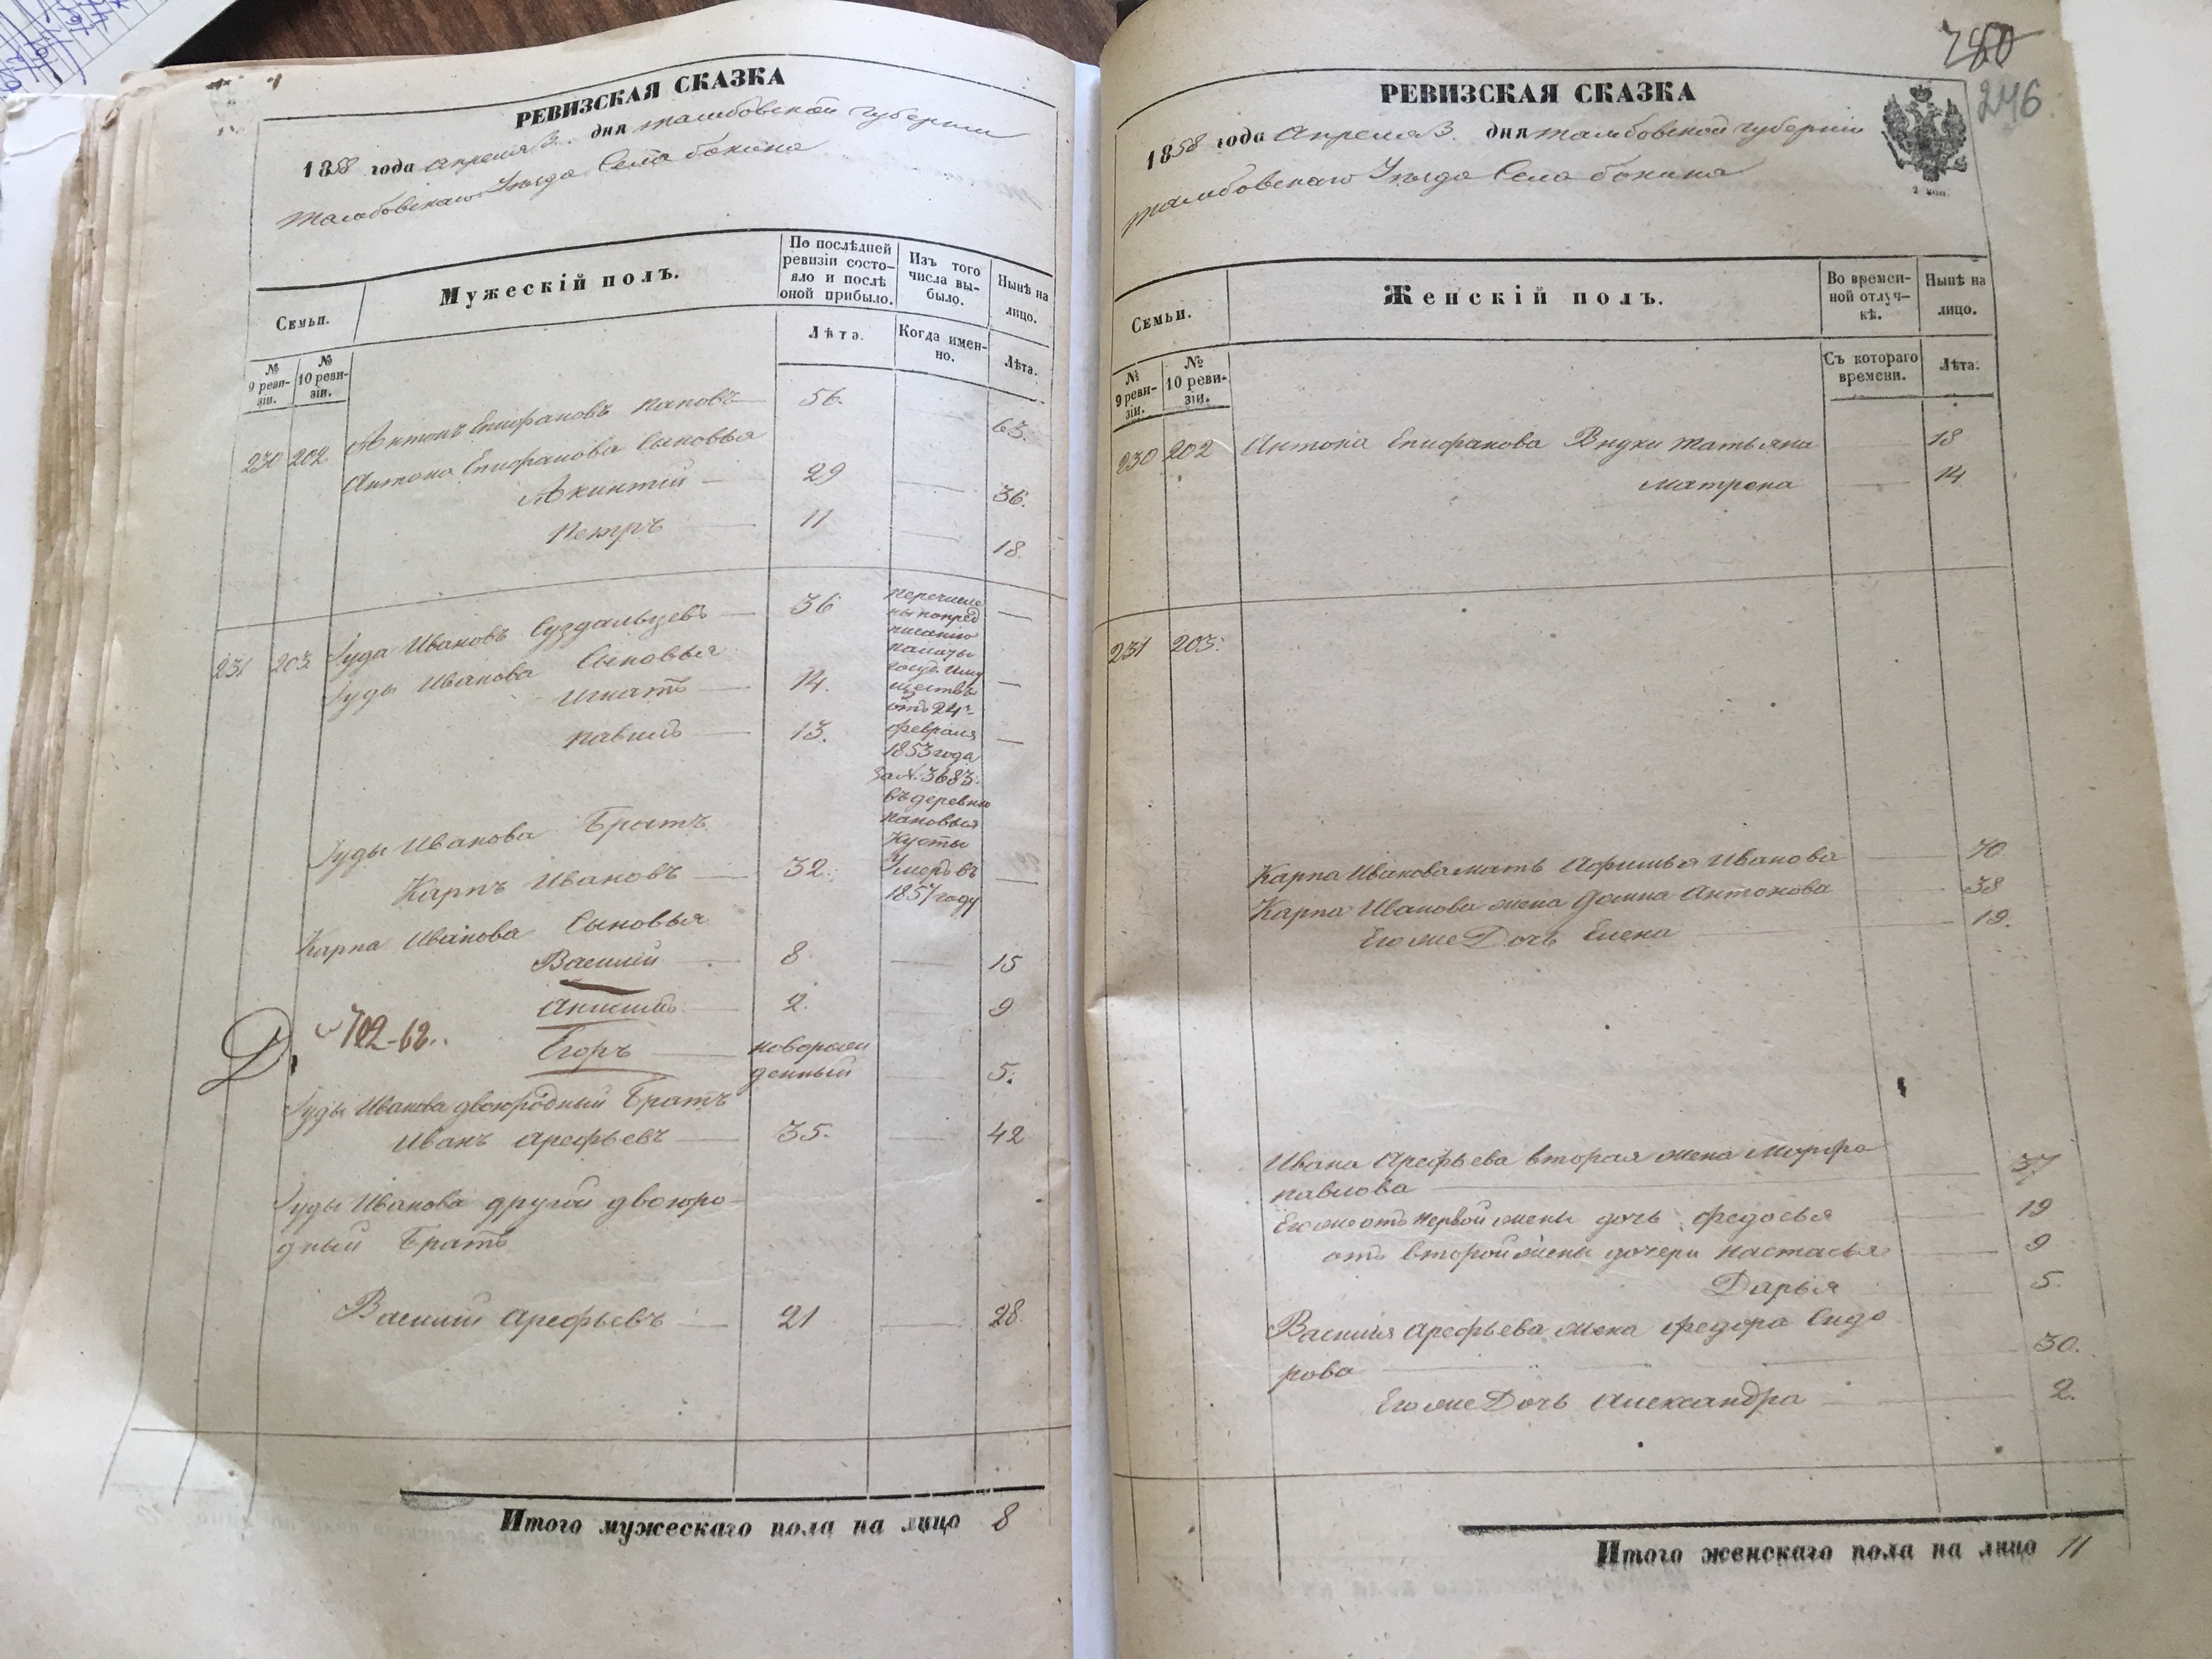 РЕВИЗСКАЯ СКАЗКА
1858 года апреля 3. дня тамбовской губернии
тамбовскаго Уезда Села бокина
Семьи.
Мужескій полъ.
По послѣдней ревизіи состояло и послѣ оной прибыло.
Изъ того числа выбыло.
Нынѣ на лицо.
№ 9 ревизіи.
№ 10 ревизіи.
Лѣта.
Когда именно.
Лѣта.
230 202 Антонъ Епифановъ паповъ 56. 63.
Антона Епифанова Сыновья
Акинтий 29 36.
Петръ 11 18.
231 203 Іуда Ивановъ Суздальцевъ 36
Іуды Иванова Сыновья
Игнатъ 14.
павилъ 13.
перечисле
ны попред
писанию
палаты
госуд. Иму
ществъ
отъ 24го
февраля
1853 года
за №. 3683.
въ деревню
пановыя
Кусты
Іуды Иванова Братъ
Карпъ Ивановъ 32.
Умеръ въ
1857 году
Карпа Иванова Сыновья
Василий 8. 15
Анисимъ 2. 9
Д. 702-62.. Егоръ новорож
денный 5.
Іуды Иванова двоюродный Братъ
Иванъ Арефьевъ 35. 42
Іуды Иванова другой двоюро-
дный Братъ
Василий Арефьевъ 21 28.
Итого мужескаго пола на лицо 8
780
246
РЕВИЗСКАЯ СКАЗКА
1858 года Апреля 3. дня тамбовской губерніи
тамбовскаго Уезда Села бокина
2 коп.
Семьи.
Женскій полъ.
Во временной отлучкѣ.
Нынѣ на лицо.
№ 9 ревизіи.
№ 10 ревизіи.
Съ котораго времени.
Лѣта.
230 202 Антона Епифанова Внуки татьяна 18
матрена 14
231 203.
Карпа Иванова мать Афимья Иванова 70
Карпа Иванова жена Домна Антонова 38
Его же Дочь Елена 19.
Ивана Арефьева вторая жена Марфа
павлова 37
Его же отъ первой жены дочь федосья 19
отъ второй жены дочери настасья 9
Дарья 5.
Василия Арефьева жена федора Сидо
рова 30.
Его же Дочь Александра 2.
Итого женскаго пола на лицо 11